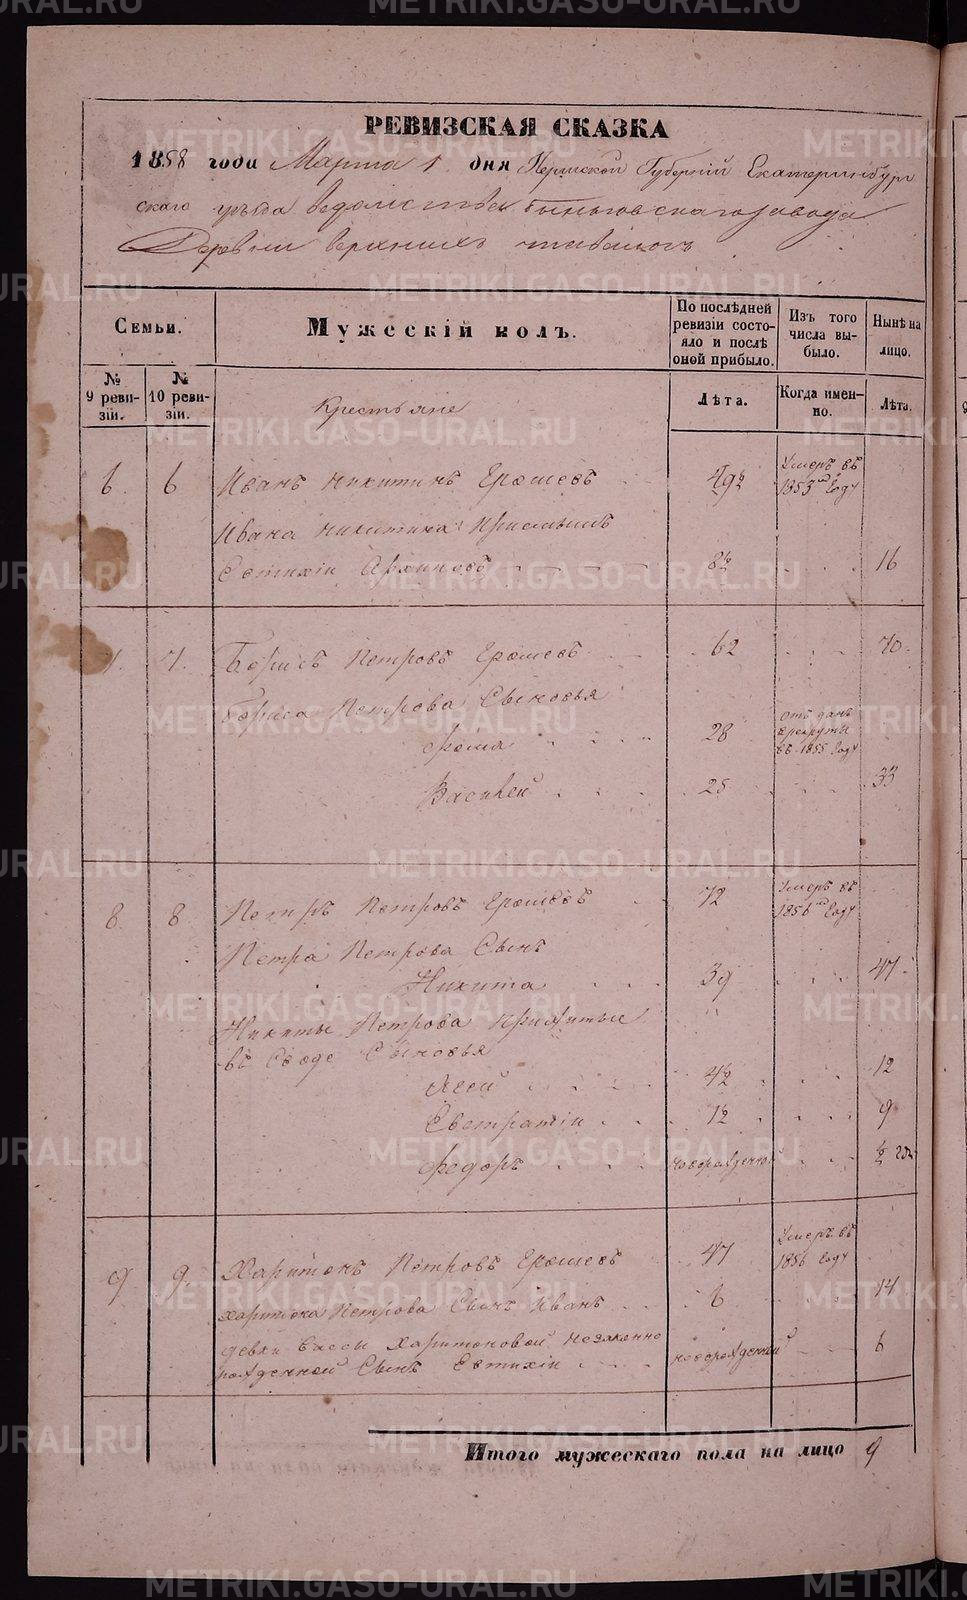 РЕВИЗСКАЯ СКАЗКА
1858 года Марта 1 дня Пермской Губернiй Екатеринбург
скаго уѣзда ведомства быньговскаго завода
Деревни верхнихъ
Семьи.
Мужескiй полъ.
По послѣдней ревизiи состояло и послѣ оной прибыло.
Изъ того числа выбыло.
Нынѣ на лицо.
№ 9 ревизiи.
№ 10 ревизiи.
Крестьяне
Лѣта.
Когда именно.
Лѣта.
6 6 Иванъ Никитинъ Ерошевъ 49½ Умеръ въ 1853мъ Году
Ивана Никитина
Евтихiй Архиповъ 8½ 16
7. 7. Борисъ Петровъ Ерошевъ 62 70
Бориса Петрова Сыновья
Фома 28 отъ данъ врекруты въ 1855 Году
Василей 25 33
8 8 Петръ Петровъ Ерошевъ 72 Умеръ въ 1856мъ Году
Петра Петрова Сынъ
Никита 39 47
Никиты Петрова Прижитые
въ Сводѣ Сыновья
Агей 4½ 12
Евстратiй 1½ 9
Федоръ новорожденной ½ года
9 9. Харитонъ Петровъ Ерошевъ 47 Умеръ въ 1856 Году
Харитона Петрова Сынъ Иванъ 6 14
девки Вассы Харитоновой незаконно
рожденной Сынъ Евтихiй новорожденной 6
Итого мужескаго пола на лицо 9
METRIKI.GASO-URAL.RU